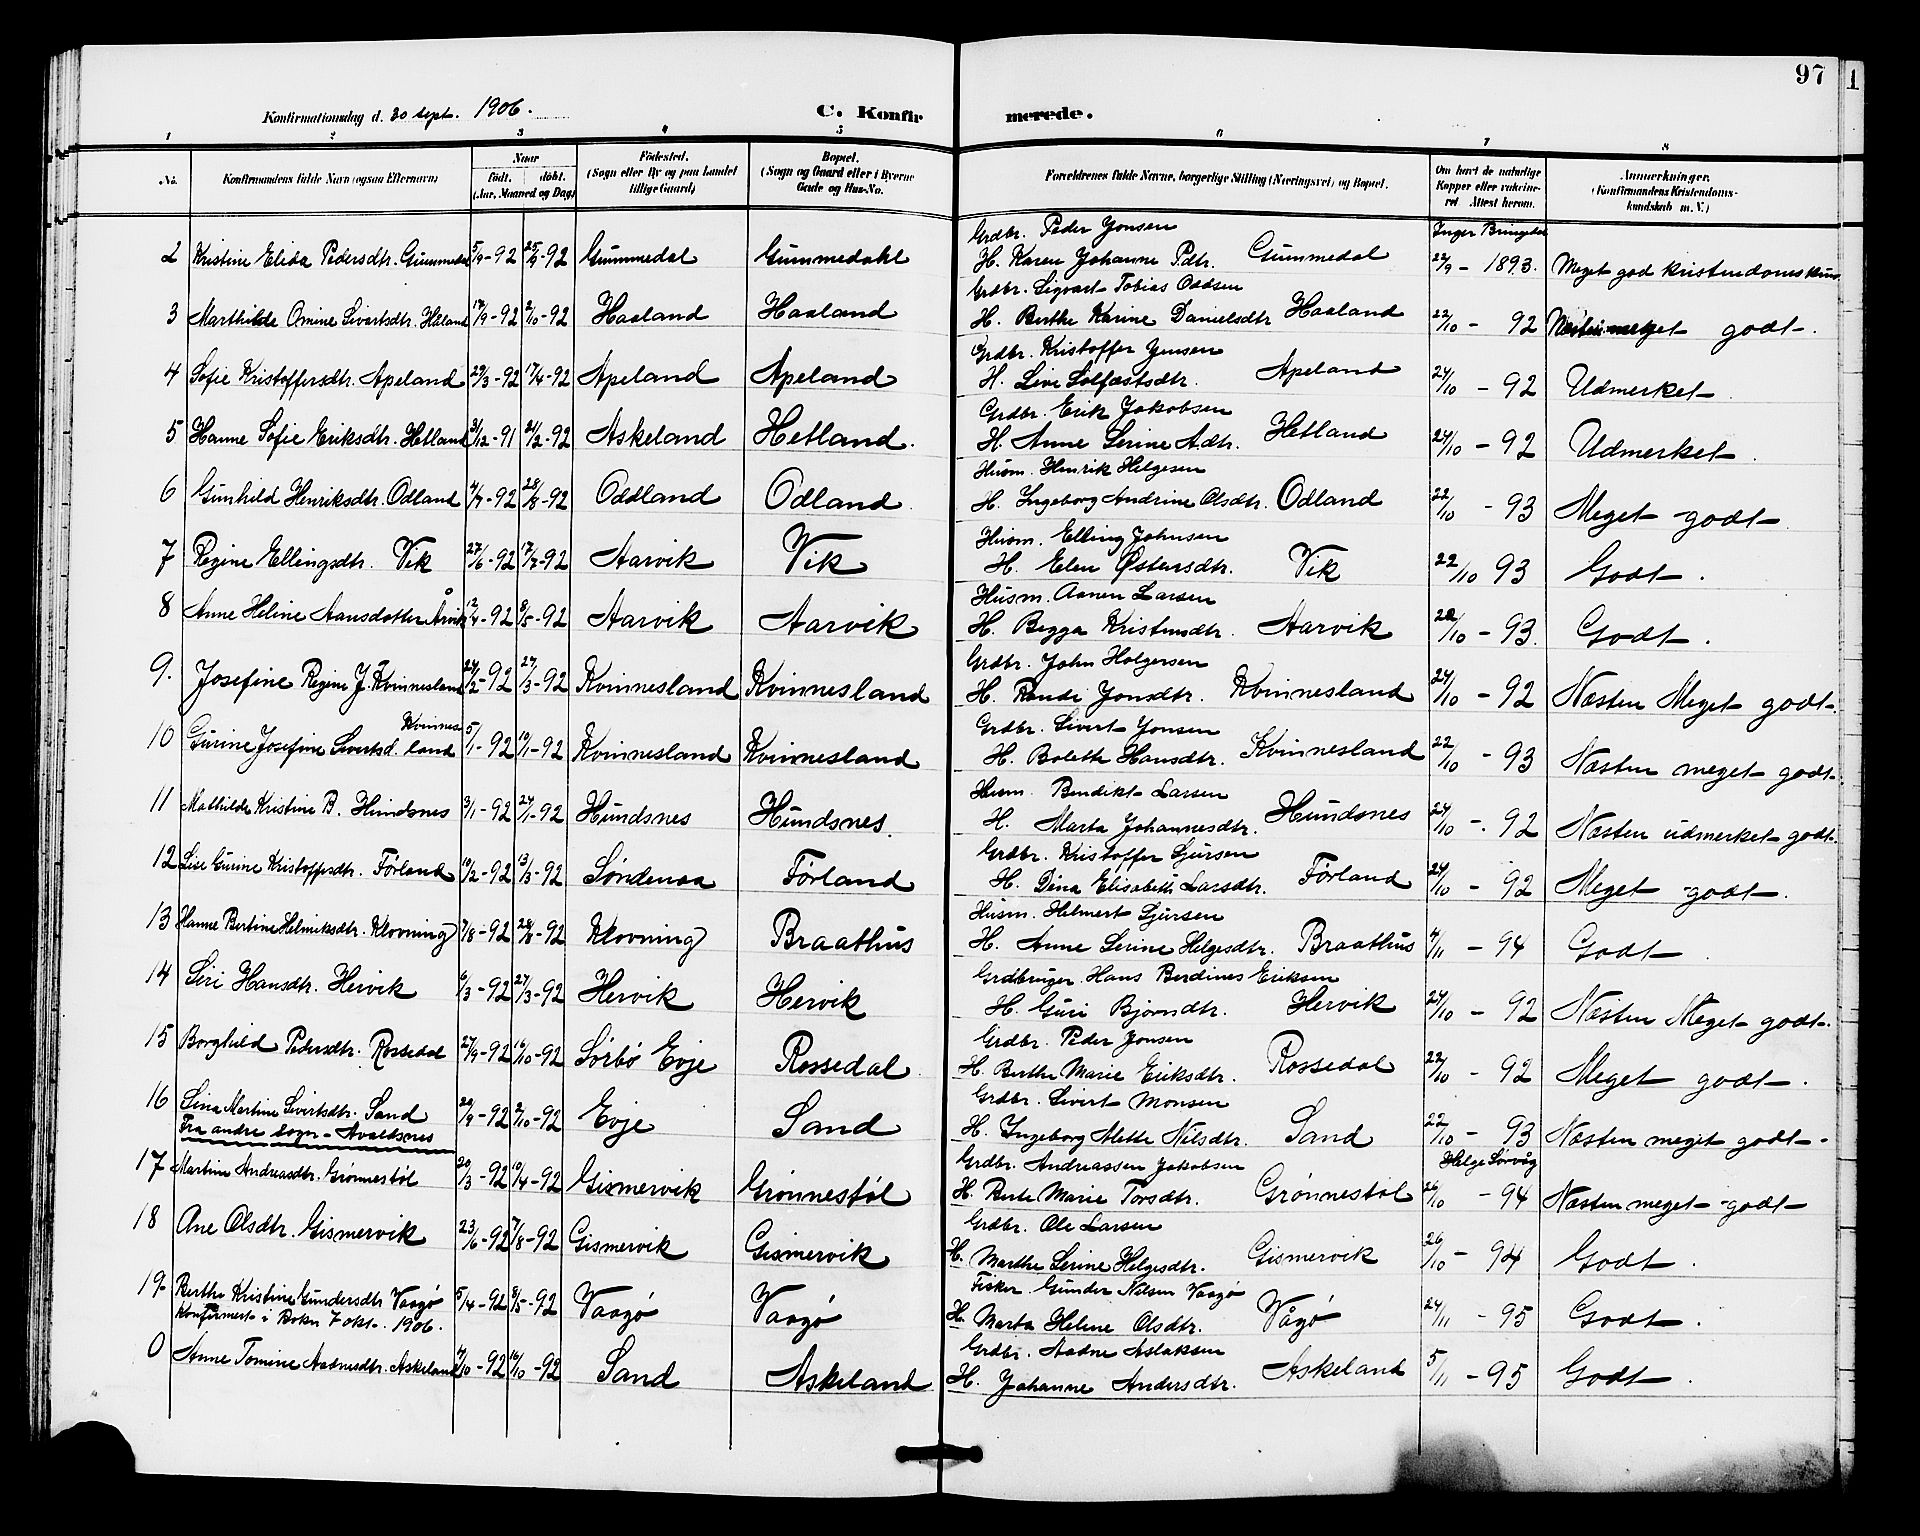 97
Konfirmationsdag d. 30 sept. 1906.
C. Konfirmerede.
1 2 3 4 5 6 7 8
No. Konfirmandens fulde Navn (ogsaa Efternavn) Naar født. døbt. (Aar, Maaned og Dag) Fødested. (Sogn eller By og paa Landet tillige Gaard) Bopæl. (Sogn og Gaard eller i Byerne Gade og Hus-No. Forældrenes fulde Navne, borgerlige Stilling (Næringsvei) og Bopæl. Om havt de naturlige Kopper eller vaccineret. Attest herom. Anmerkninger. (Konfirmandens Kristendomskundskab m. V.)
2 Kristine Elida Pedersdtr. Gummedal 5/9-92 25/9-92 Gummedal Gummedahl Grdbr. Peder Jonsen H. Karen Johanne Pdtr. Gummedal Inger Bringedal 27/9 - 1893. Meget god kristendomskuns
3 Marthilde Omine Sivertsdtr. Håland 17/9-92 2/10-92 Haaland Haaland Grdbr. Sigvart Tobias Oddsen H. Berthe Karine Danielsdtr Haaland 22/10 - 92 Næsten meget godt.
4 Sofie Kristoffersdtr. Apeland 29/3-92 17/4-92 Apeland Apeland Grdbr. Kristoffer Jensen H. Live Solfæstsdtr. Apeland 24/10 - 92 Udmerket
5 Hanne Sofie Eriksdtr. Hetland 31/12-91 21/2-92 Askeland Hetland. Grdbr. Erik Jakobsen H. Anne Serine Adtr. Hetland 24/10 - 92 Udmerket.
6 Gunhild Henriksdtr. Odland 4/7-92 28/8-92 Oddland Odland. Husm. Henrik Helgesen H. Ingeborg Andrine Olsdtr. Odland 22/10 - 93 Meget godt
7 Regine Ellingsdtr. Vik 27/6-92 17/7-92 Aarvik Vik Husm. Elling Johnsen H. Elen Østensdtr. Vik 22/10 93 Godt.
8 Anne Heline Aansdatter Årvik 12/4-92 8/5-92 Aarvik Aarvik Husm. Aanen Larsen H. Begga Kristensdtr. Aarvik 22/10 - 93. Godt.
9. Josefine Regine J. Kvinnesland 24/2-92 27/3-92 Kvinnesland Kvinnesland Grdbr. John Holgersen H. Randi Jonsdtr. Kvinnesland 24/10 - 92 Næsten Meget godt.
10 Gurine Josefine Sivertsd. Kvinnesland 5/1-92 10/1-92 Kvinnesland Kvinnesland Grdbr. Sivert Jonsen H. Bolette Hansdtr. Kvinnesland 22/10 - 93 Næsten meget godt.
11 Mathilde Kristine B. Hundsnes 3/1-92 24/1-92 Hundsnes Hundsnes. Husm. Bendikt Larsen H. Marta Johannesdtr. Hundsnes 24/10 - 92 Næsten udmerket godt.
12 Lise Gurine Kristoffersdtr. Førland 10/2-92 13/3-92 Søndenaa Førland Grdbr. Kristoffer Sjursen H. Dina Elisabeth Larsdtr. Førland 24/10 - 92 Meget godt.
13 Hanne Bertine Helmiksdtr. Klovning 7/8-92 28/8-92 Klovning Braathus Husm. Helmert Sjursen H. Anne Serine Helgesdtr. Braathus 4/11 - 94 Godt.
14 Siri Hansdtr. Hervik 6/3-92 27/3-92 Hervik Hervik Grdbruger Hans Berdines Eriksen H. Guri Bjørndtr. Hervik 24/10 - 92 Næsten Meget godt.
15 Borghild Pedersdtr. Rossedal 27/9-92 16/10-92 Sørbø Evje Rossedal Grdbr. Peder Jonsen H. Berthe Marie Eriksdtr. Rossedal 22/10 - 92 Meget godt.
16 Lina Martine Sivertsdtr. Sand 20/9-92 2/10-92 Evje Sand Grdbr. Sivert Monsen H. Ingeborg Mette Nilsdtr. Sand 22/10 - 93 Næsten meget godt.
Fra andre sogn - Avaldsnes
17 Martine Andreasdtr. Grønnestøl 20/3-92 10/4-92 Gismervik Grønnestøl Grdbr. Andreassen Jakobsen H. Berte Marie Torsdtr. Grønnestøl Helge Sørvåg 26/10 - 94 Næsten meget godt
18 Ane Olsdtr. Gismervik 23/6-92 7/8-92 Gismervik Gismervik Grdbr. Ole Larsen H. Marthe Serine Helgesdtr. Gismervik 26/10 - 94 Godt.
19. Berthe Kristine Gundersdtr Vaagø 5/4-92 8/5-92 Vaagø Vaagø Fisker Gunder Nilsen Vaagø H. Marta Helene Olsdtr. Vågø 24/11 - 95 Godt.
Konfirmert i Bokn 7 okt. 1906.
0 Anne Tomine Aadnesdtr. Askeland 7/10-92 16/10-92 Sand Askeland Grdbr. Aadne Aslaksen H. Johanne Andersdtr. Askeland 5/11 - 95 Godt.